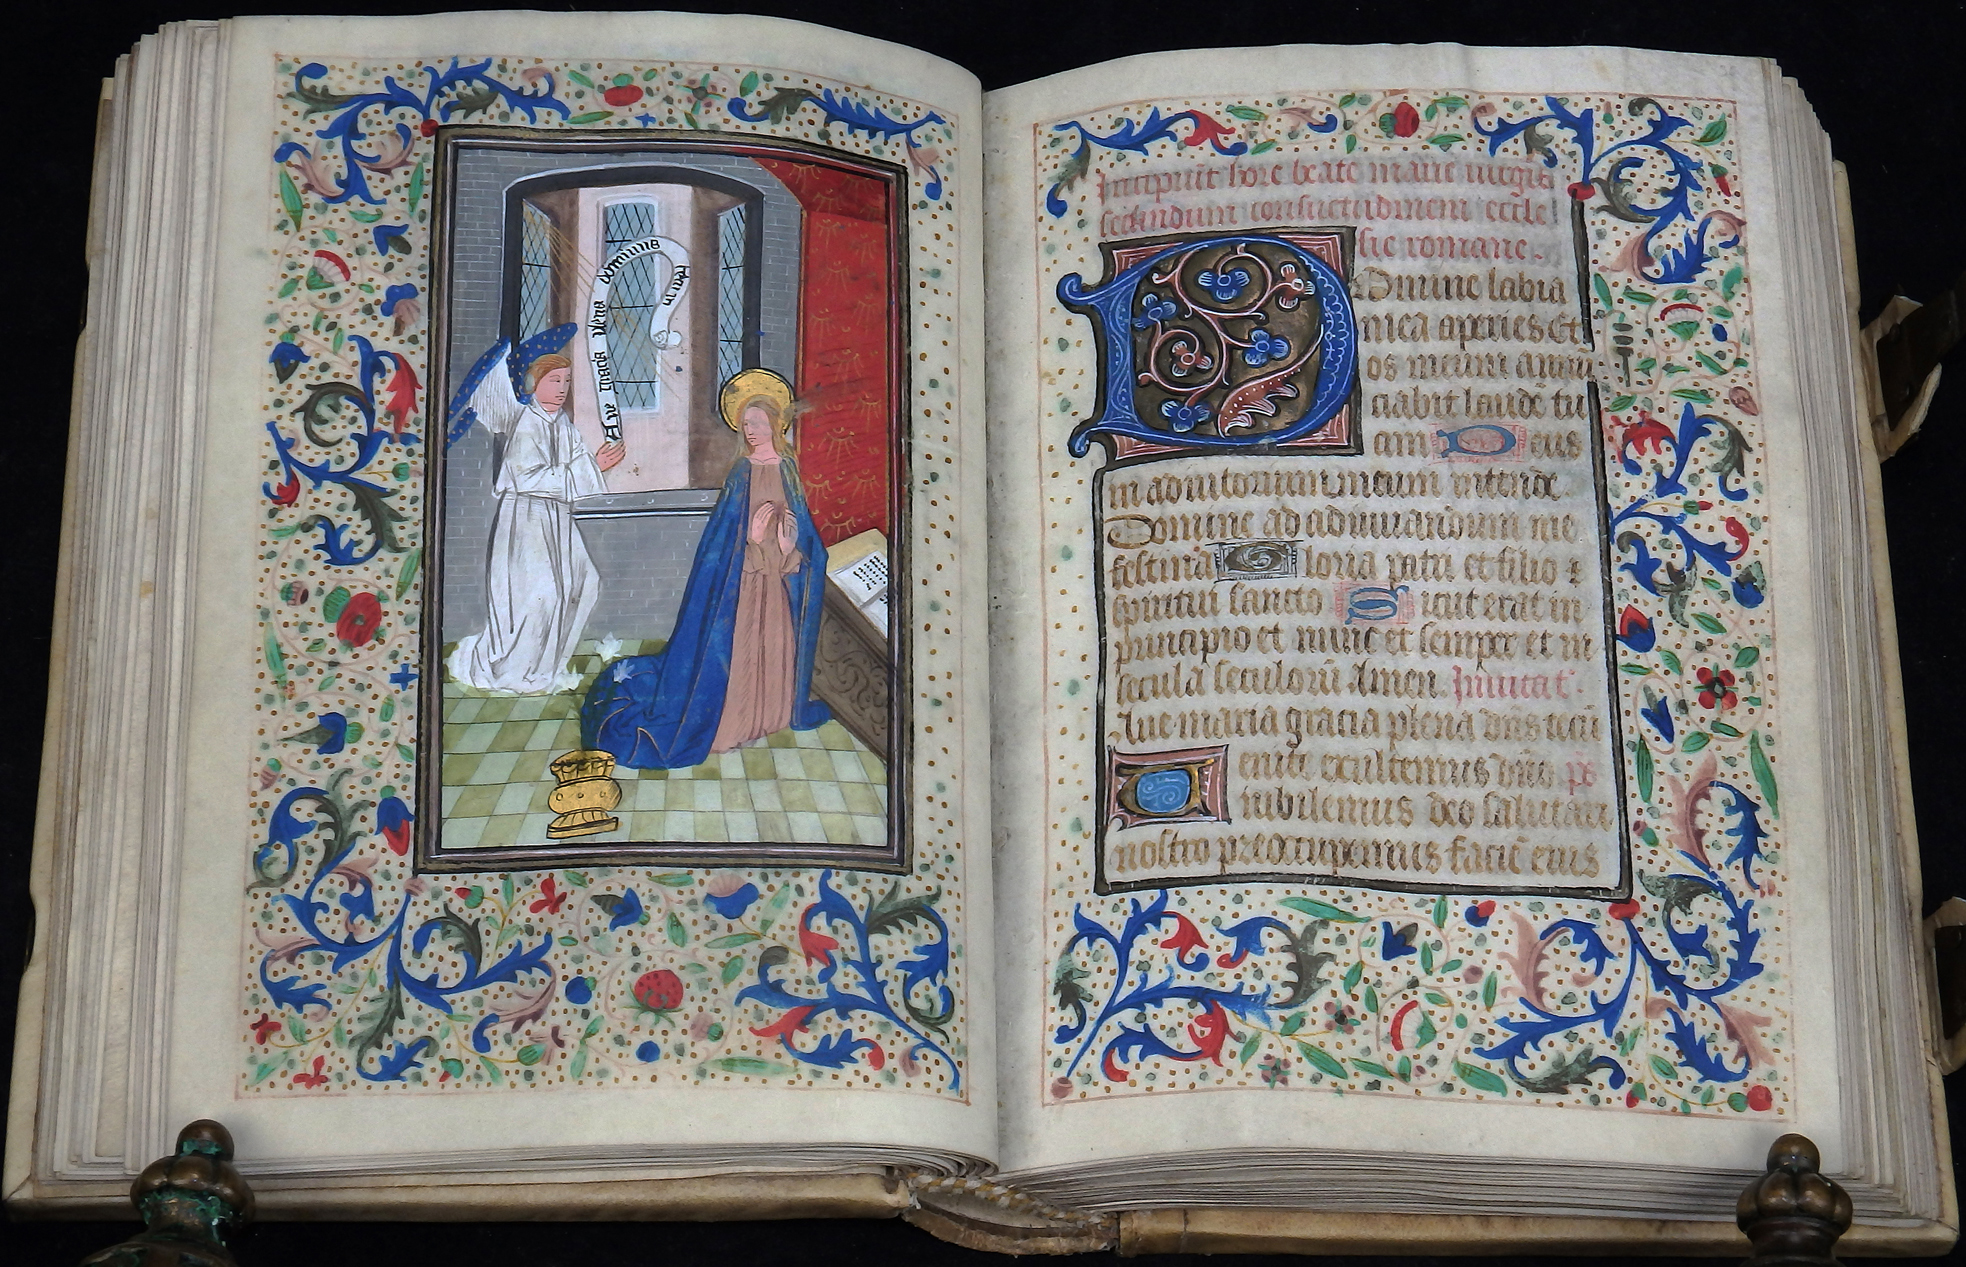 Aue maria plena domin9
Incipiunt hore beate marie uirgis
secundum consuetudinem eccle
sie romane.
Domine labia
mea aperies Et
os meum annu
ciabit laudē tu
am Deus
in adiutorium meum intende
Domine ad adiuuandum me
festina Gloria patri et filio et
spiritui sancto Sicut erat in
principio et nunc et semper et in
secula seculorū Amen. Inuitat.
Aue maria gracia plena dn̄s tecū
Uenite exultemus dn̄o
iubilemus deo salutari
nostro preoccupemus faciē eius